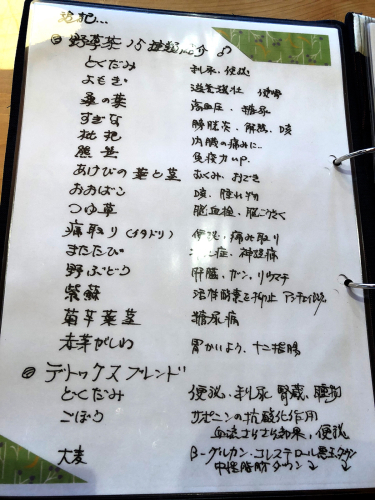 追記...
◎ 野草茶15種類紹介♪
とくだみ 利尿、便秘
よもぎ 滋養強壮 便秘
桑の葉 高血圧、糖尿
すぎな 膀胱炎、解熱、咳
枇杷 内臓の痛みに..
熊笹 免疫力up.
あけびの葉と茎 むくみ、おでき
おおばこ 咳、腫れ物
つゆ草 脳血栓、脳こうそく
痛取り(イタドリ) 便秘、痛み取り
またたび 症、神経痛
野ぶどう 肝臓、ガン、リウマチ
紫蘇 活性酸素を抑止
菊芋葉茎 糖尿病
赤芽がしわ 胃かいよう、十二指腸
◎ デトックスブレンド
とくだみ 便秘、利尿 腎臓、
ごぼう サポニンの抗酸化作用
血流さらさら効果、便秘
大麦 β-グルカン・コレステロール悪玉ダウン
中性脂肪ダウン↓